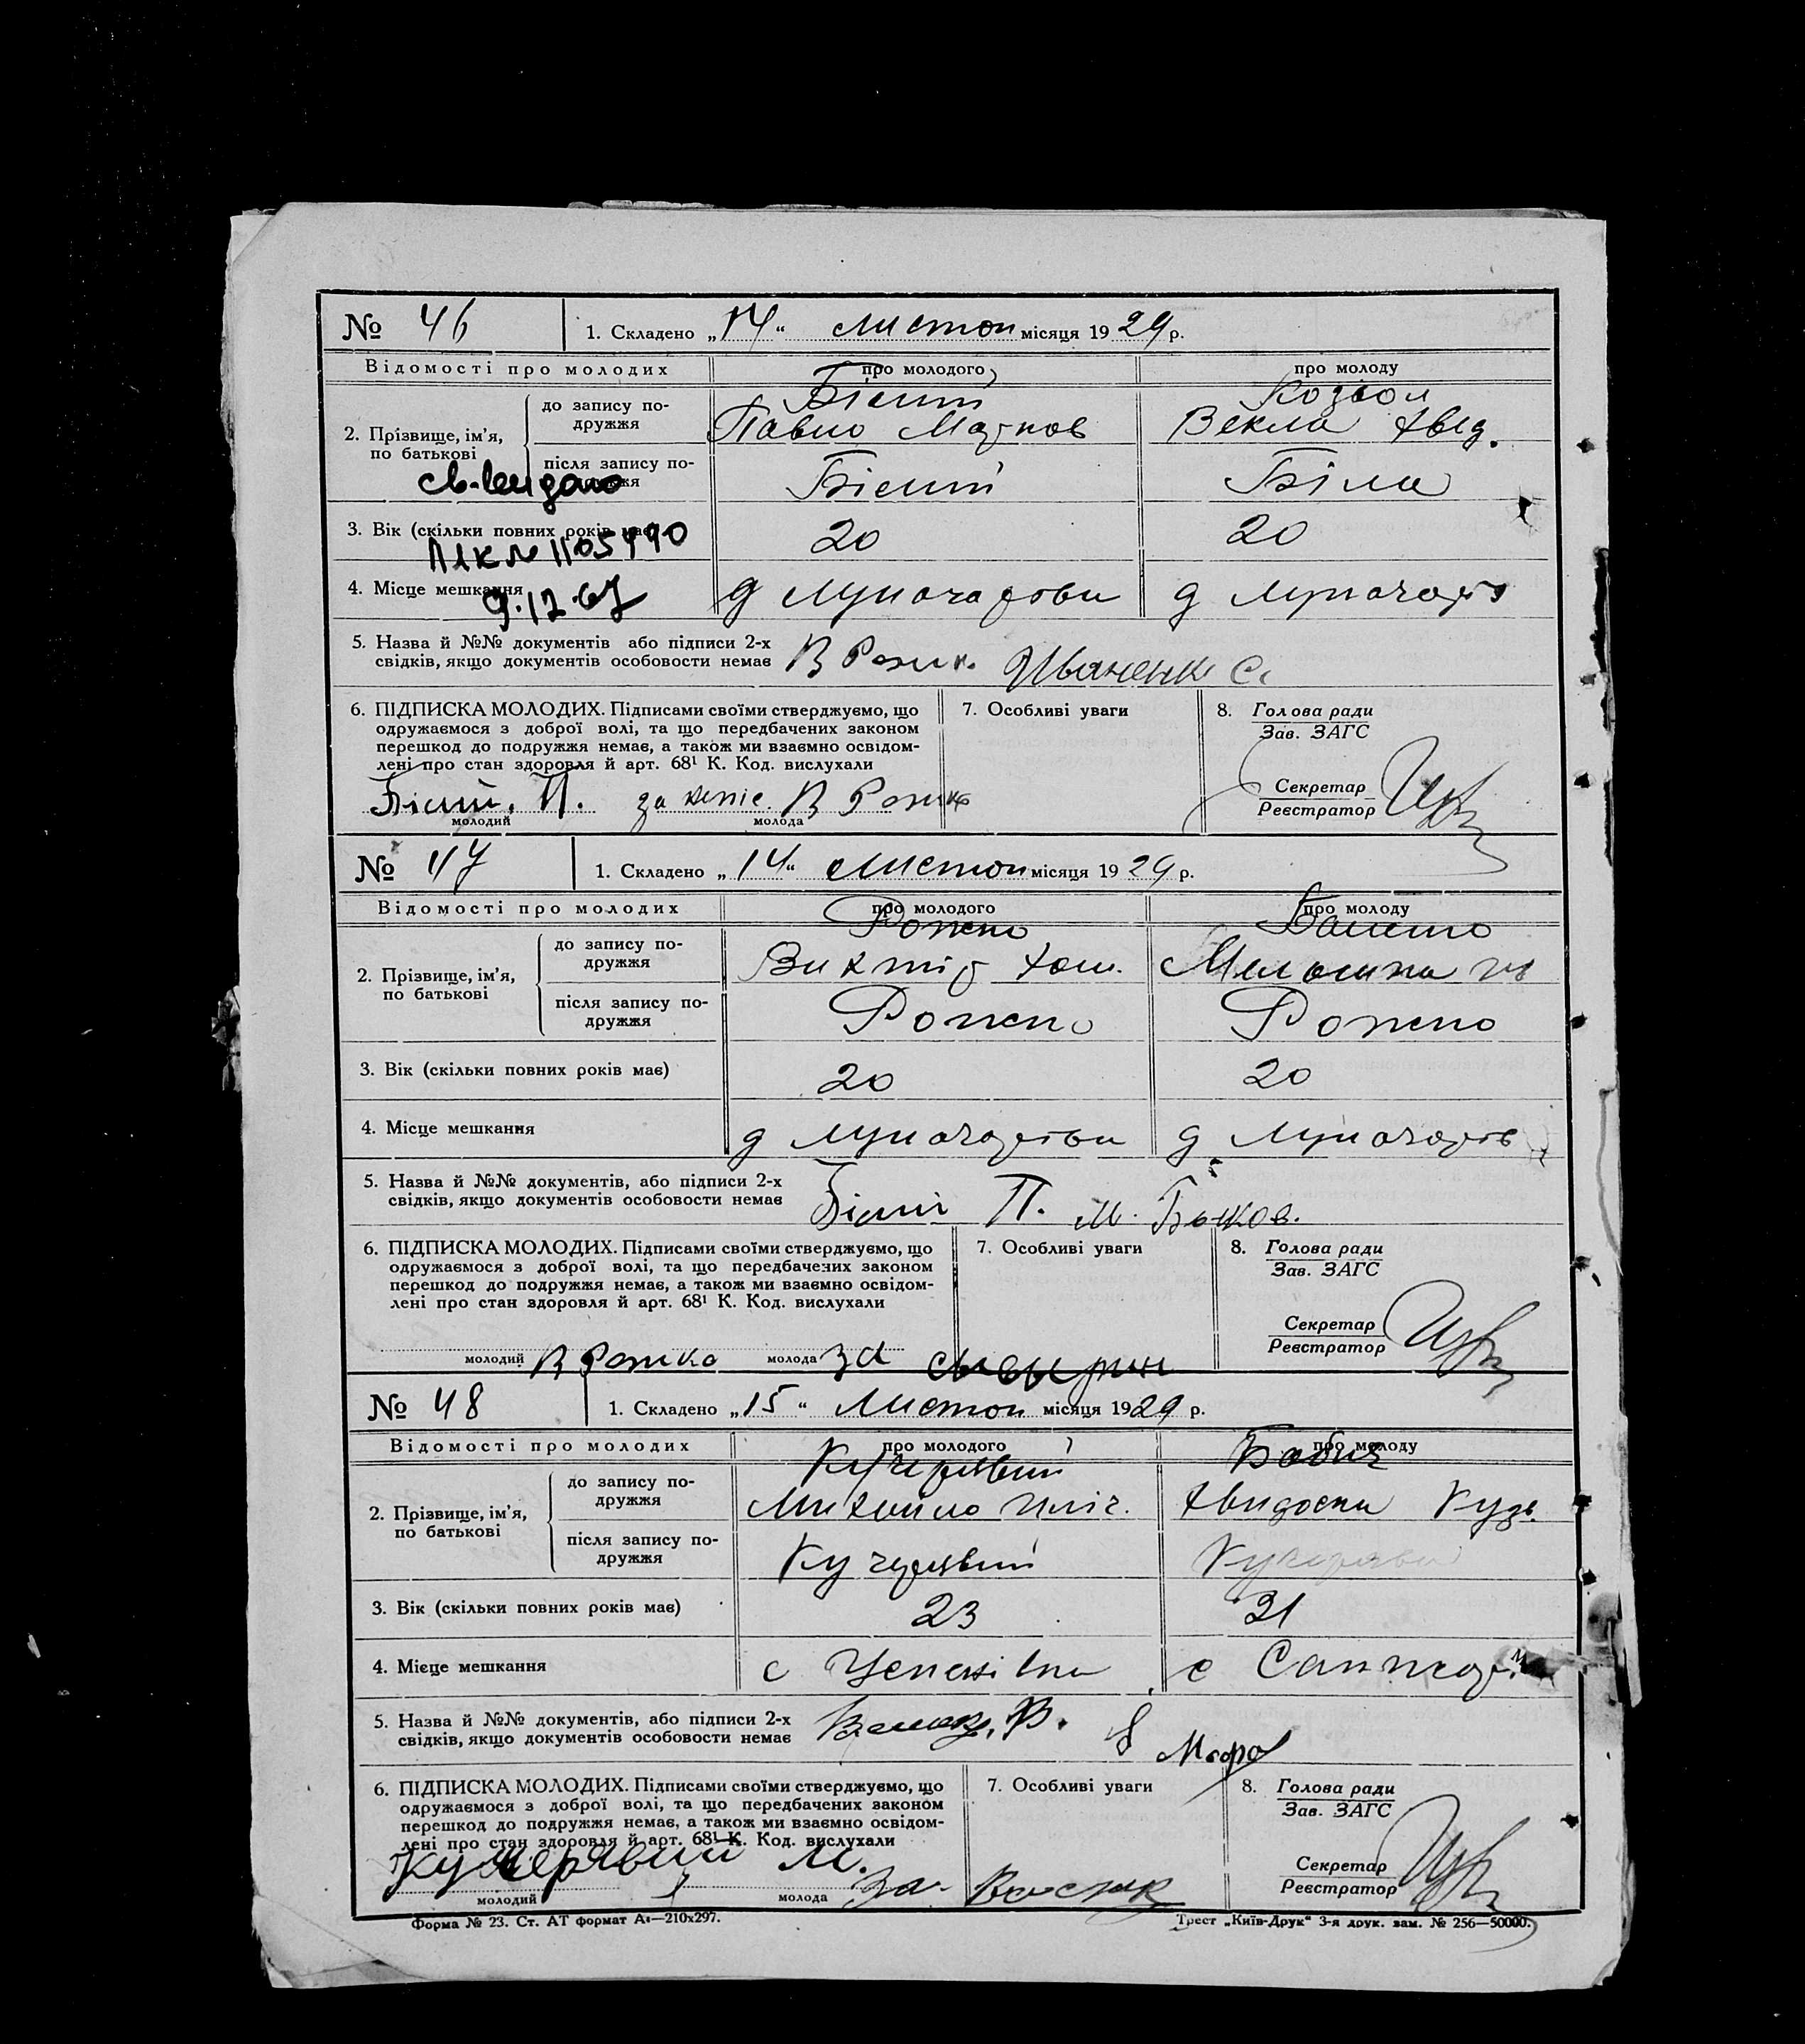 № 46 1. Складено „14“ листоп місяця 1929 р.
Відомості про молодих про молодого про молоду
Білий Козіол
до запису по-
дружжя
Павло Марков Векла Авед.
2. Прізвище, ім’я,
по батькові
після запису по-
Білий Біла
3. Вік (скільки повних років має) 20 20
№ 1105440
4. Місце мешкання д Луначарськи д Луначарс
9.12.67
5. Назва й №№ документів або підписи 2-х
свідків, якщо документів особовости немає В Рожк. Иваненк С.
6. ПІДПИСКА МОЛОДИХ. Підписами своїми стверджуємо, що
одружаємося з доброї волі, та що передбачених законом
перешкод до подружжя немає, а також ми взаємно освідом-
лені про стан здоровля й арт. 68¹ К. Код. вислухали
7. Особливі уваги
8. Голова ради
Зав. ЗАГС
Секретар
Реєстратор
Білий. П. за непис. В Рожко
молодий молода
№ 47 1. Складено „14“ листоп місяця 1929 р.
Відомості про молодих про молодого про молоду
Рожко
до запису по-
дружжя
Виктір Хом.
2. Прізвище, ім’я,
по батькові
після запису по-
дружжя
Рожко Рожко
3. Вік (скільки повних років має) 20 20
4. Місце мешкання д Луначарськи д Луначарс
5. Назва й №№ документів, або підписи 2-х
свідків, якщо документів особовости немає Білий П. М. Быков.
6. ПІДПИСКА МОЛОДИХ. Підписами своїми стверджуємо, що
одружаємося з доброї волі, та що передбачених законом
перешкод до подружжя немає, а також ми взаємно освідом-
лені про стан здоровля й арт. 68¹ К. Код. вислухали
7. Особливі уваги
8. Голова ради
Зав. ЗАГС
Секретар
Реєстратор
молодий В Рожко молода за
№ 48 1. Складено „15“ Листоп місяця 1929 р.
Відомості про молодих про молодого про молоду
Кучерявий Бабич
до запису по-
дружжя
Михайло Ілліч. Явидоска Кузь.
2. Прізвище, ім’я,
по батькові
після запису по-
дружжя
Кучерявий Кучерявий
3. Вік (скільки повних років має) 23 21
4. Місце мешкання с с
5. Назва й №№ документів, або підписи 2-х
свідків, якщо документів особовости немає
6. ПІДПИСКА МОЛОДИХ. Підписами своїми стверджуємо, що
одружаємося з доброї волі, та що передбачених законом
перешкод до подружжя немає, а також ми взаємно освідом-
лені про стан здоровля й арт. 68¹ К. Код. вислухали
7. Особливі уваги
8. Голова ради
Зав. ЗАГС
Секретар
Реєстратор
Кучерявий М. За.
молодий молода
Форма № 23. Ст. АТ формат А₄—210x297. Трест „Київ-Друк“ 3-я друк. зам. № 256—50000.